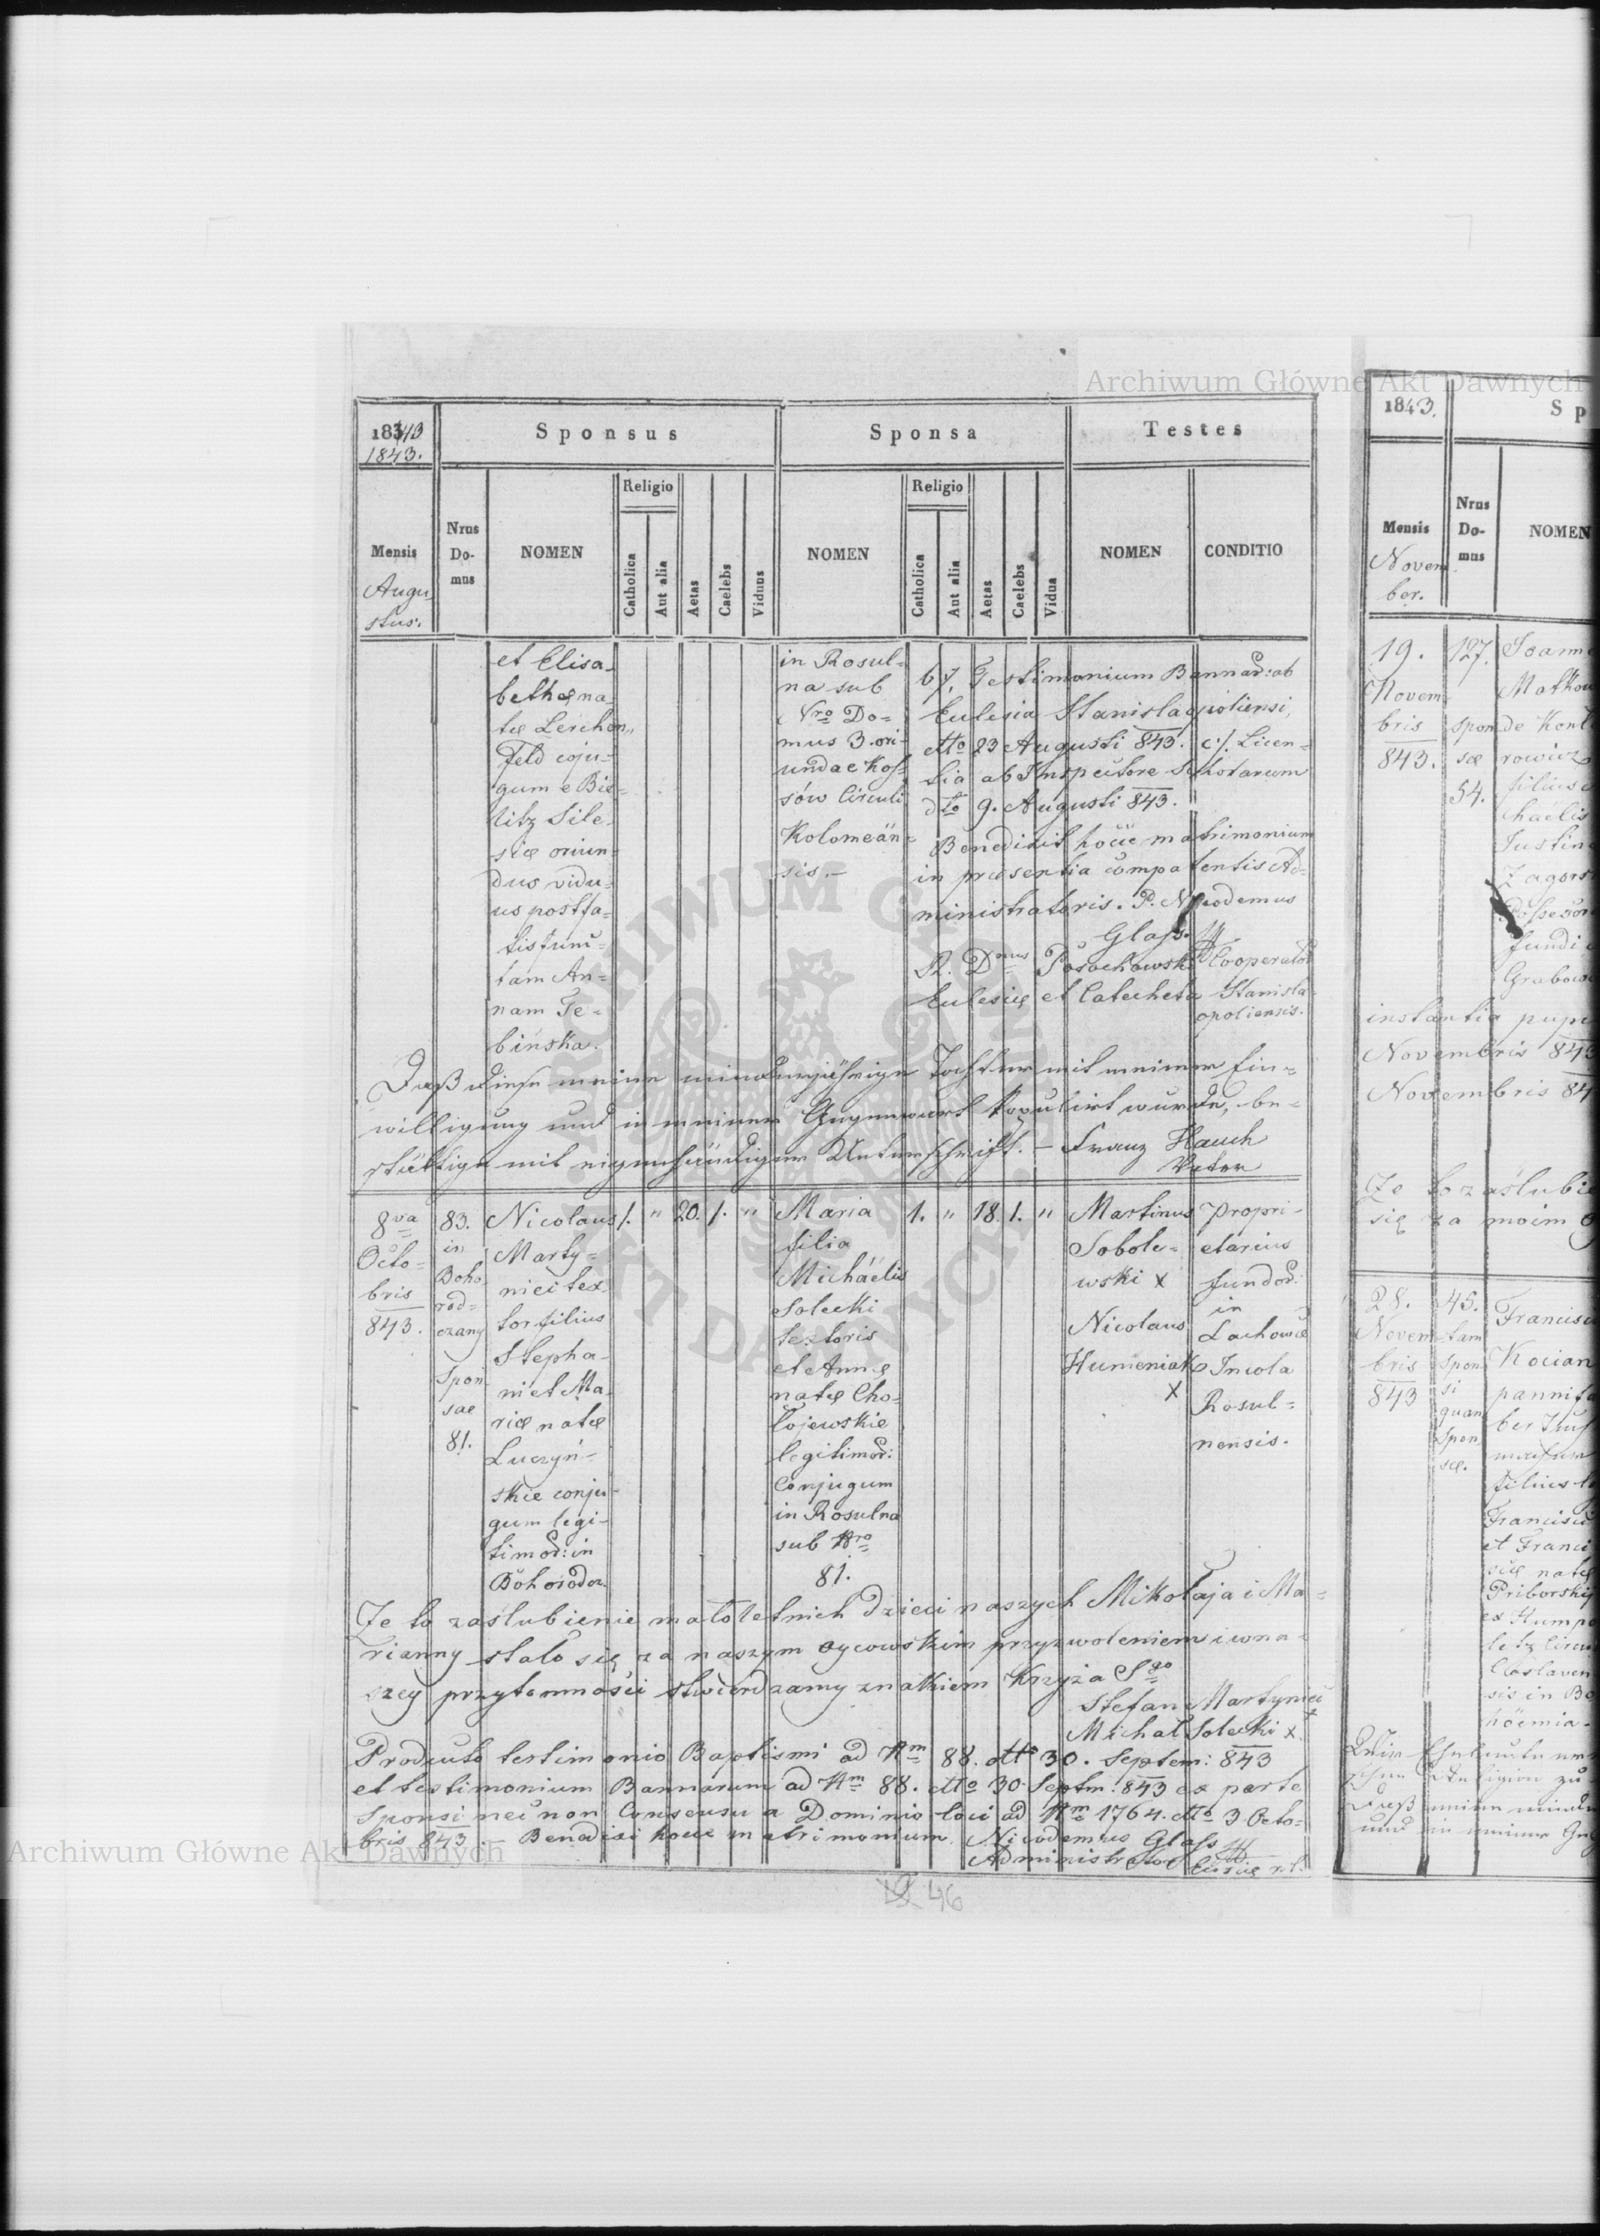 Archiwum Główne Akt Dawnych
1843
1843.
Sponsus
Sponsa
Testes
Mensis
Augu
stus.
Nrus
Do-
mus
NOMEN
Religio
Catholica
Aut alia
Aetas
Caelebs
Viduus
NOMEN
Religio
Catholica
Aut alia
Aetas
Caelebs
Vidua
NOMEN
CONDITIO
et Elisa-
bethę na-
tę Lerchen„
feld conju-
gum e Bie-
litz Sile-
siæ oriun-
dus vidu-
us postfa-
tis func-
tam An-
nam Te-
bińska.
in Rosul-
na sub
Nro Do-
mus 3. ori-
undae Kos-
sów Circuli
Kolomeän-
sis.-
b/. Testimonium Bannar: ab
Ecclesia Stanislaopoliensi,
dto 23 Augusti 843. c/. Licen-
tia ab Inspectore Scholarum
dto 9. Augusti 843.
Benedixit hocce matrimonium
in præsentia competentis Ad-
ministratoris. P. Nicodemus
Glass.
R. Dnus Posochowski Cooperator
Ecclesię et Catecheta Stanisla-
opoliensis.
Daß diese meine minderjährige Tochter mit meiner Ein-
willigung und in meiner Gegenwart kopulirt wurde, be-
stättige mit eigenhändiger Unterschrift. - Franz Hauch
Vater
8va
Octo-
bris
843.
83.
in
Boho
rod-
czany
Spon
sae
81.
Nicolaus
Marty-
nici tex-
tor filius
Stepha-
ni et Ma-
riæ natæ
Luczyń-
skie conju-
gum legi-
timor: in
Bohorodcz.
1. " 20. 1. "
Maria
filia
Michaelis
Solecki
textoris
et Annę
natę Cho-
łojewskie
legitimor:
Conjugum
in Rosulna
sub Nro
81.
1. " 18. 1. "
Martinus
Sobole-
wski x
Nicolaus
Humeniak
x
Propri-
etarius
fundor:
in
Lachowce
Incola
Rosul-
nensis.
Że to zaślubienie małoletnich dzieci naszych Mikołaja i Ma-
rianny stało się za naszym oycowskim przyzwoleniem i w na-
szey przytomności stwierdzamy znakiem Krzyża Sgo
Stefan Martynici x
Michał Solecki x.
Producto testimonio Baptismi ad Nrm 88. dto 30. Septem: 843
et testimonium Bannarum ad Nrm 88. dto 30 Septm. 843 ex parte
Sponsi nec non Consensu a Dominio loci ad Nrm 1764. dto 3 Octo-
bris 843. - Benedixi hocce matrimonium. Nicodemus Glass
Administrator
46
1843.
Sp
Mensis
Novem
ber.
Nrus
Do-
mus
NOMEN
19.
Novem
bris
843.
127.
spon
sæ
54.
Joanne
de Kont
rowicz
filius
chaelis
Justin
Zagors
fundi
instantia pupi
Novembris 843
Novembris 84
Że to zaślubie
się za moim
28.
Novem
bris
843
45.
tam
spon
si
quam
spon
sæ.
Francisc
Kocian
pannifa
filius
Francisci
et Franci
scæ natę
Priborsky
sis in Bo
höemia.
Archiwum Główne Akt Dawnych